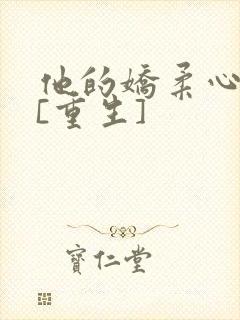 他的嬌柔心
[重生]
寶仁堂